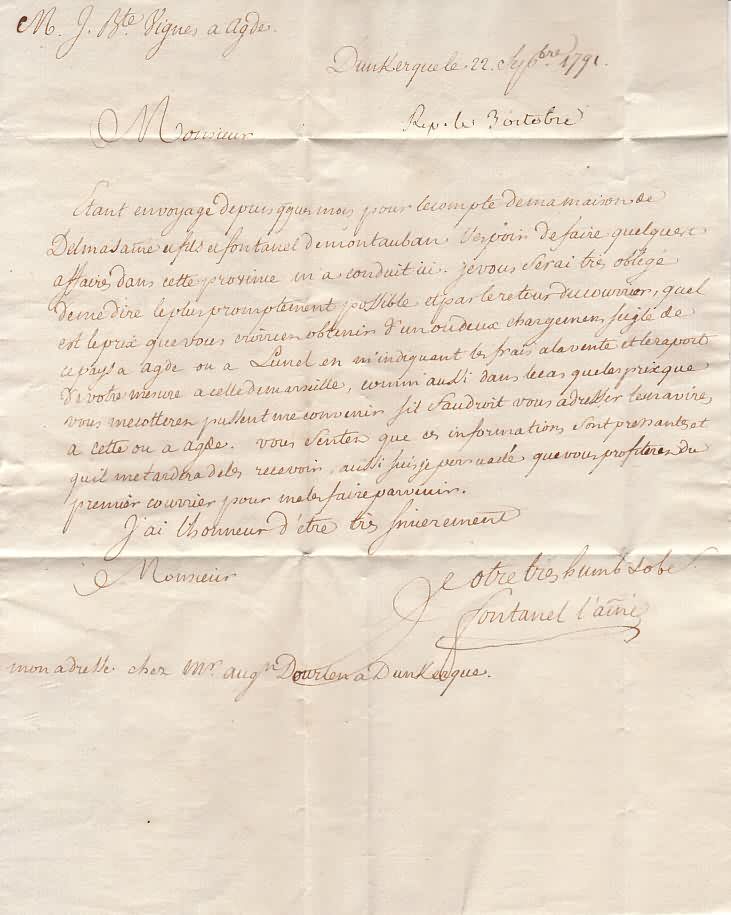 M. J. Bte. Vignes a agde.
Dunkerque le 22 Septbre 1791.
Rep. le 3 octobre
Monsieur
Etant en voyage depuis qques mois pour le compte de ma maison de
Delmas ainé et fils et fontanel de montauban l'espoir de faire quelques
affaires dans cette province m'a conduit ici. je vous serai très obligé
de me dire le plus promptement possible et par le retour du courrier, quel
est le prix que vous croiries obtenir d'un ou deux chargemens seigle de
ce pays a agde ou a Lunel en m'indiquant les frais a la vente et le raport
de votre mesure a celle de marseille, comm'aussi dans le cas que les prix que
vous me cotteres pussent me convenir s'il faudroit vous adresser les navires
a cette ou a agde. vous sentes que ces informations sont pressantes et
qu'il me tardera de les recevoir, aussi suis je persuadé que vous profiteres du
premier courrier pour me les faire parvenir.
J'ai l'honneur d'être très sincerement
Monsieur
Votre très humb & obe
fontanel l'ainé
mon adresse chez Mr. augn Dourlen a Dunkerque.